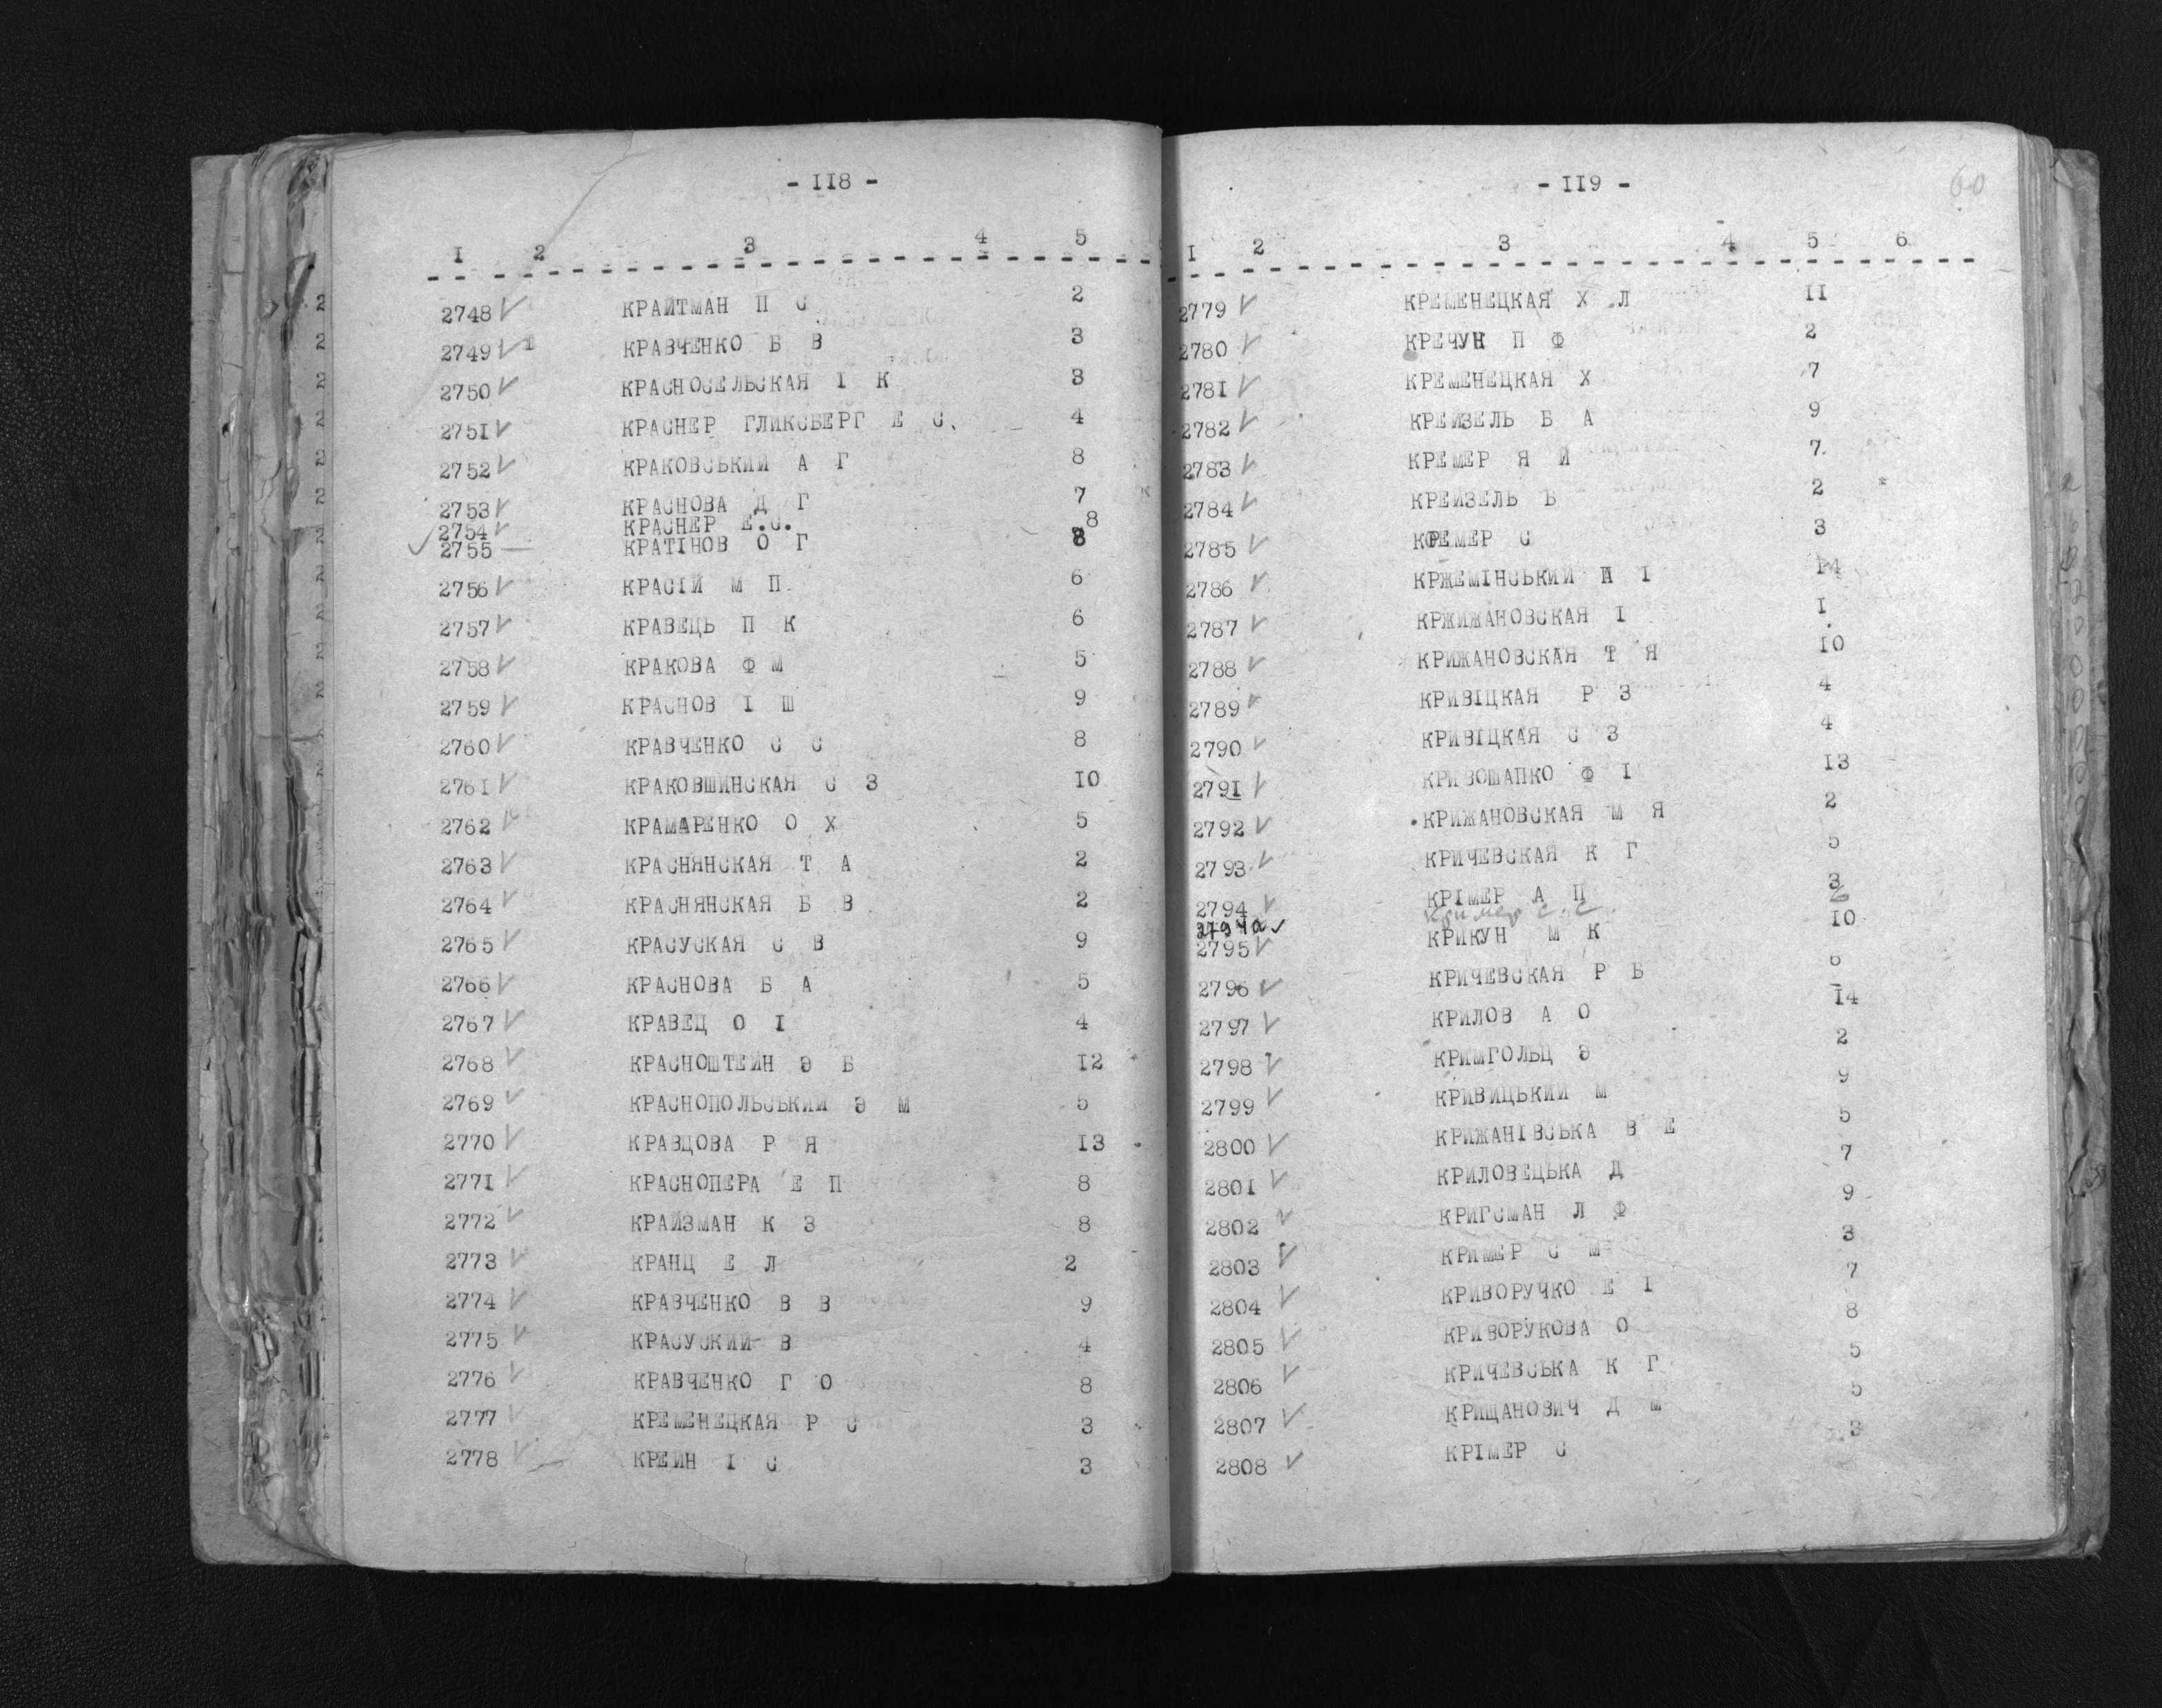 - II8 -
I 2 3 4 5
2748 КРАЙТМАН П С 2
2749 КРАВЧЕНКО Б В 3
2750 КРАСНОСЕЛЬСКАЯ І К 3
275I КРАСНЕР ГЛИКСБЕРГ Е С. 4
2752 КРАКОВСЬКИЙ А Г 8
2753 КРАСНОВА Д Г 7
2754 КРАСНЕР Е.С. 8
2755 КРАТІНОВ О Г 8
2756 КРАСІЙ М П 6
2757 КРАВЕЦЬ П К 6
2758 КРАКОВА Ф М 5
2759 КРАСНОВ І Ш 9
2760 КРАВЧЕНКО С С 8
276I КРАКОВШИНСКАЯ С З I0
2762 КРАМАРЕНКО О Х 5
2763 КРАСНЯНСКАЯ Т А 2
2764 КРАСНЯНСКАЯ Б В 2
2765 КРАСУСКАЯ С В 9
2766 КРАСНОВА Б А 5
2767 КРАВЕЦ О І 4
2768 КРАСНОШТЕЙН Э Б I2
2769 КРАСНОПОЛЬСЬКИЙ Э М 5
2770 КРАВЦОВА Р Я I3
277I КРАСНОПЕРА Е П 8
2772 КРАЙЗМАН К З 8
2773 КРАНЦ Е Л 2
2774 КРАВЧЕНКО В В 9
2775 КРАСУСКИЙ В 4
2776 КРАВЧЕНКО Г О 8
2777 КРЕМЕНЕЦКАЯ Р С 3
2778 КРЕЙН І С 3
- II9 -
60
I 2 3 4 5 6
2779 КРЕМЕНЕЦКАЯ Х Л II
2780 КРЕЧУН П Ф 2
278I КРЕМЕНЕЦКАЯ Х 7
2782 КРЕЙЗЕЛЬ Б А 9
2783 КРЕМЕР Я Й 7
2784 КРЕЙЗЕЛЬ Б 2
2785 КРЕМЕР С 3
2786 КРЖЕМІНСЬКИЙ І I4
2787 КРЖИЖАНОВСКАЯ І I
2788 КРИЖАНОВСКАЯ Т Я I0
2789 КРИВІЦКАЯ Р З 4
2790 КРИВІЦКАЯ С З 4
279I КРИВОШАПКО Ф І I3
2792 КРИЖАНОВСКАЯ М Я 2
2793 КРИЧЕВСКАЯ К Г 5
2794 КРІМЕР А П 3
2794а Кример С.С. 6
2795 КРИКУН М К I0
2796 КРИЧЕВСКАЯ Р Б 6
2797 КРИЛОВ А О I4
2798 КРИМГОЛЬЦ Э 2
2799 КРИВИЦЬКИЙ М 9
2800 КРИЖАНІВСЬКА В Е 5
280I КРИЛОВЕЦЬКА Д 7
2802 КРИГСМАН Л Ф 9
2803 КРИМЕР С М 3
2804 КРИВОРУЧКО Е І 7
2805 КРИВОРУКОВА О 8
2806 КРИЧЕВСЬКА К Г 5
2807 КРИЩАНОВИЧ Д М 5
2808 КРІМЕР С 3